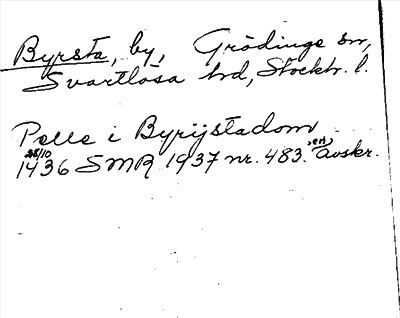 Byrsta, by, Grödinge sn,
Svartlösa hd, Stockh. l.
Pelle i Byrijstadom
28/10 1436 SMR 1937 nr. 483. enl. avskr.